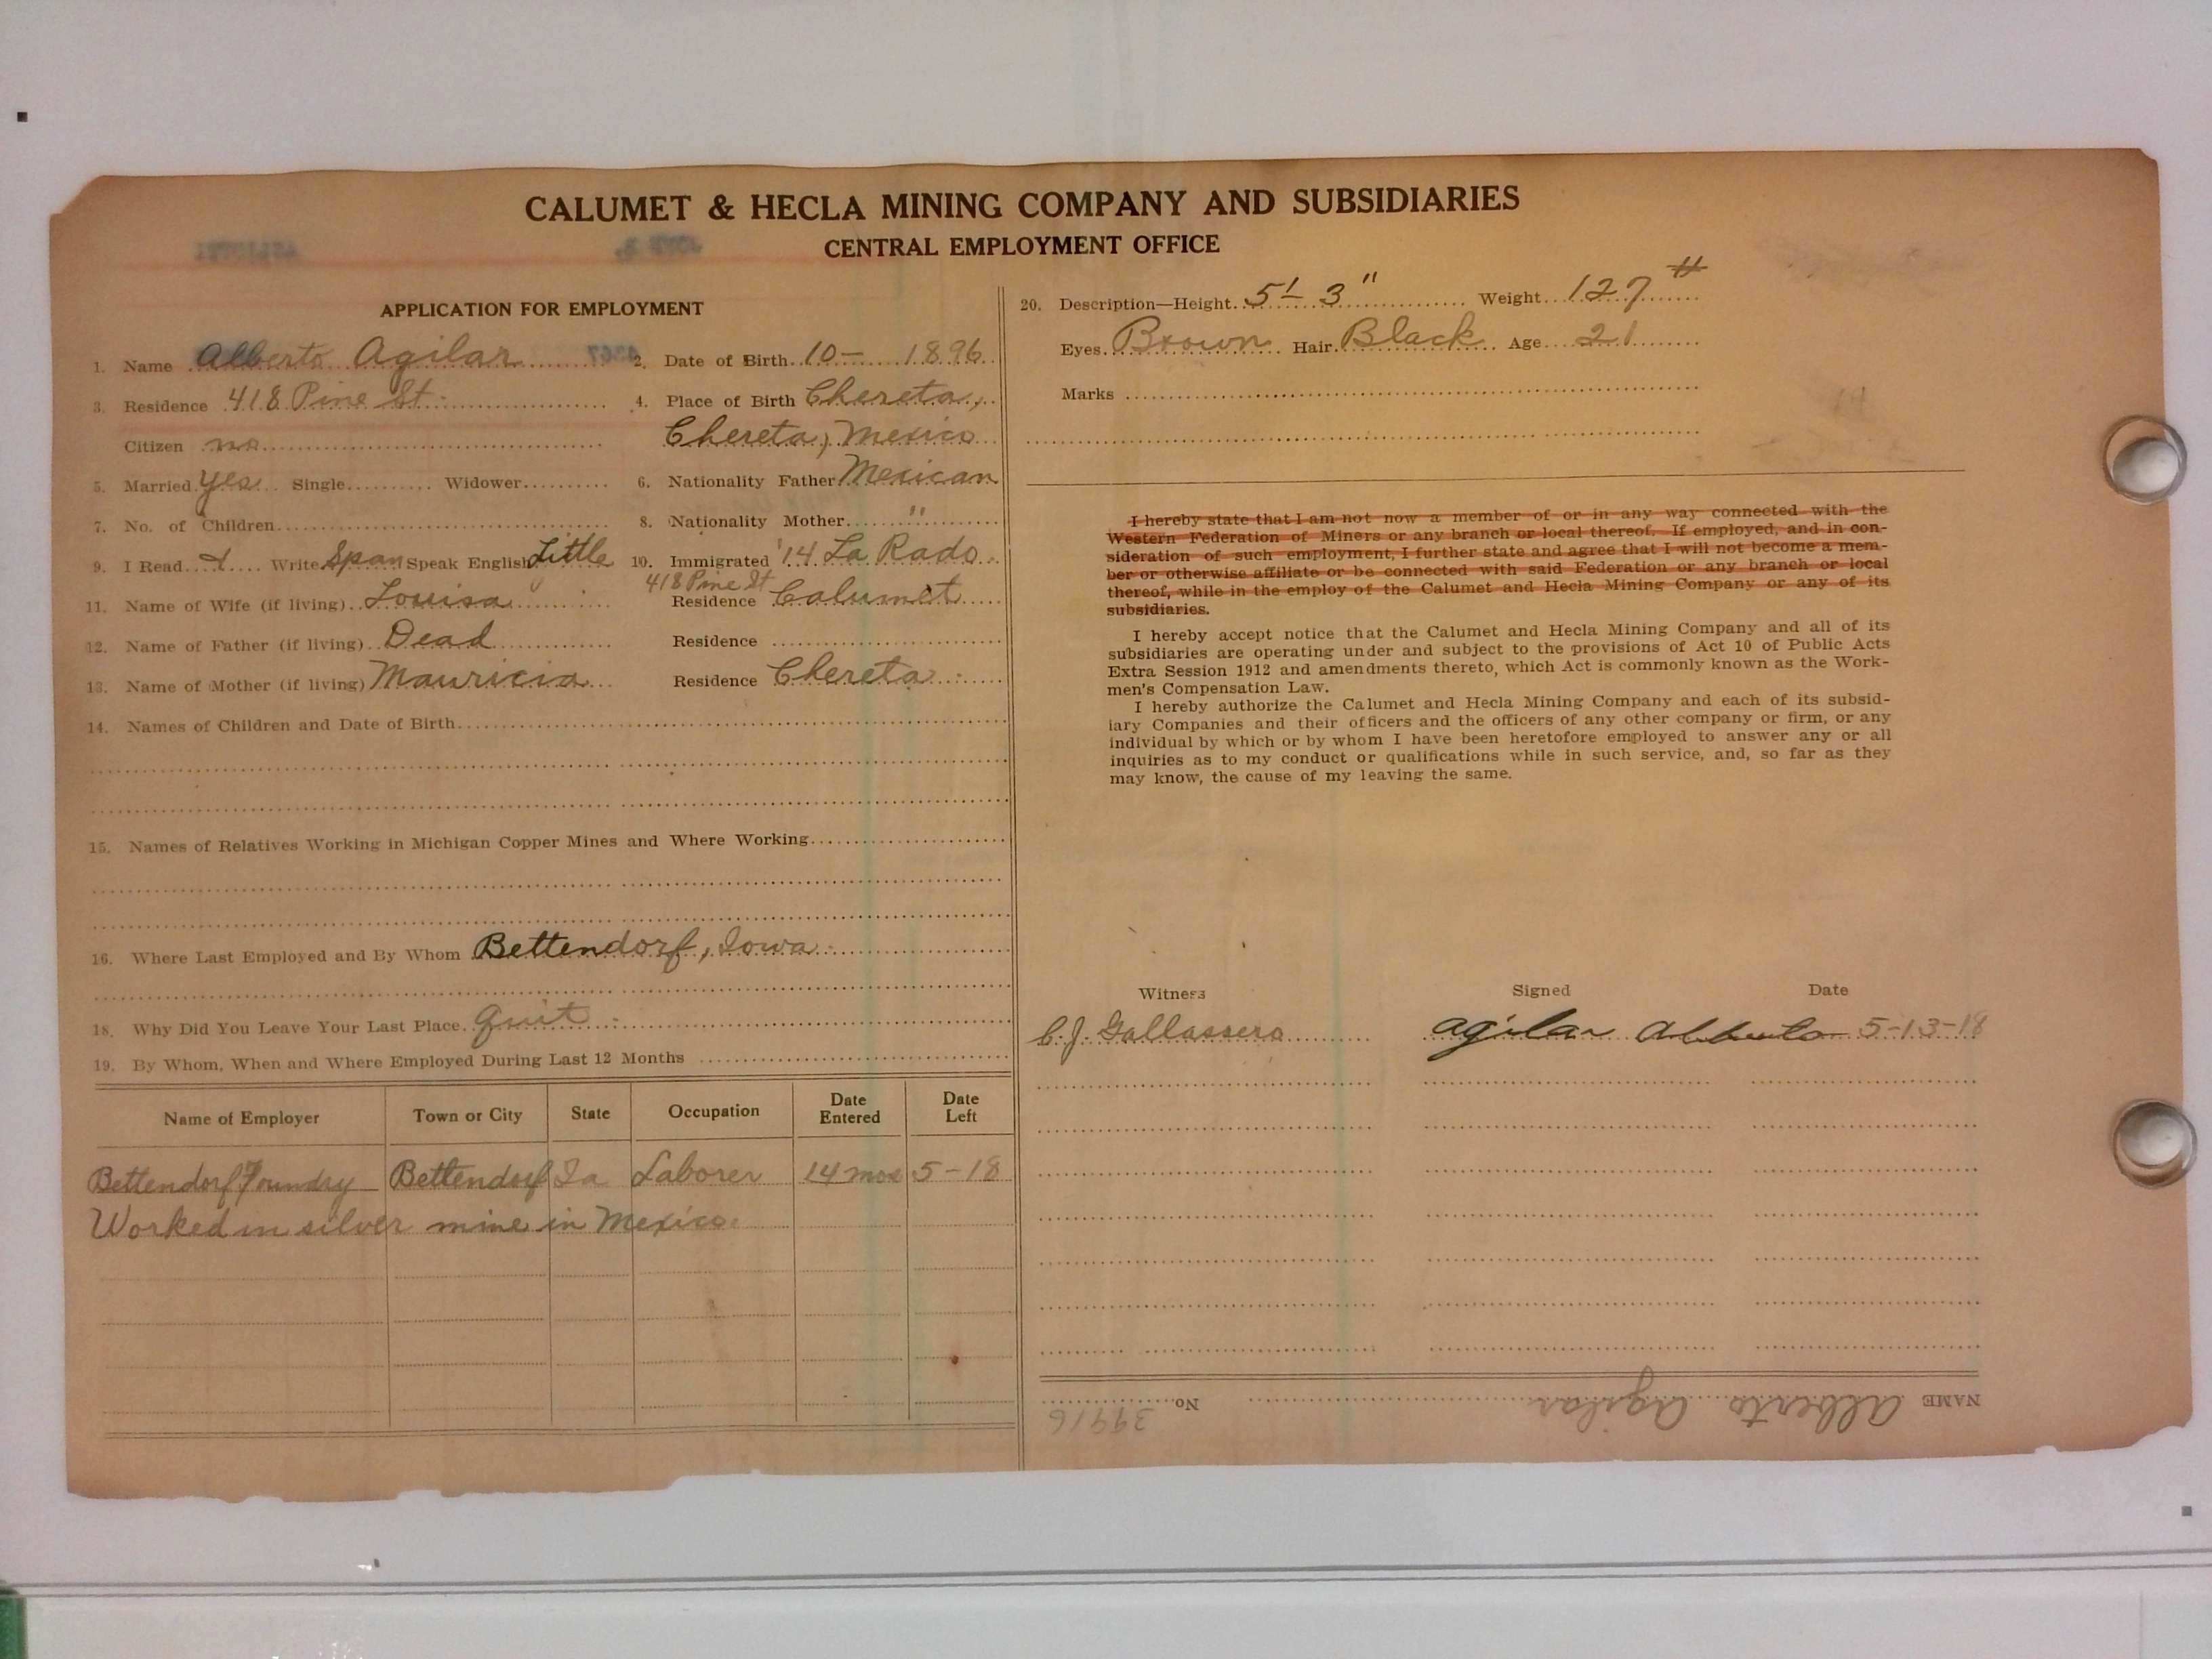 CALUMET & HECLA MINING COMPANY AND SUBSIDIARIES
CENTRAL EMPLOYMENT OFFICE
APPLICATION FOR EMPLOYMENT
1. Name Alberto Agilar 2. Date of Birth 10- 1896
3. Residence 418 Pine St. 4. Place of Birth Chereta,
Citizen no Chereta, Mexico
5. Married yes Single Widower 6. Nationality Father Mexican
7. No. of Children 8. Nationality Mother "
9. I Read & Write Span Speak English Little 10. Immigrated '14 La Rado
418 Pine St
11. Name of Wife (if living) Louisa Residence Calumet
12. Name of Father (if living) Dead Residence
13. Name of Mother (if living) Mauricia Residence Chereta
14. Names of Children and Date of Birth
15. Names of Relatives Working in Michigan Copper Mines and Where Working
16. Where Last Employed and By Whom Bettendorf, Iowa
18. Why Did You Leave Your Last Place. quit
19. By Whom, When and Where Employed During Last 12 Months
Name of Employer Town or City State Occupation Date Entered Date Left
Bettendorf Foundry Bettendorf Ia Laborer 14 mos 5-18
Worked in silver mine in Mexico.
20. Description—Height 5' 3" Weight 127 #
Eyes Brown Hair Black Age 21
Marks
I hereby state that I am not now a member of or in any way connected with the
Western Federation of Miners or any branch or local thereof. If employed, and in con-
sideration of such employment, I further state and agree that I will not become a mem-
ber or otherwise affiliate or be connected with said Federation or any branch or local
thereof, while in the employ of the Calumet and Hecla Mining Company or any of its
subsidiaries.
I hereby accept notice that the Calumet and Hecla Mining Company and all of its
subsidiaries are operating under and subject to the provisions of Act 10 of Public Acts
Extra Session 1912 and amendments thereto, which Act is commonly known as the Work-
men's Compensation Law.
I hereby authorize the Calumet and Hecla Mining Company and each of its subsid-
iary Companies and their officers and the officers of any other company or firm, or any
individual by which or by whom I have been heretofore employed to answer any or all
inquiries as to my conduct or qualifications while in such service, and, so far as they
may know, the cause of my leaving the same.
Witness Signed Date
C. J. Gallassero Agilar Alberto 5-13-18
NAME Alberto Agilar No. 39916